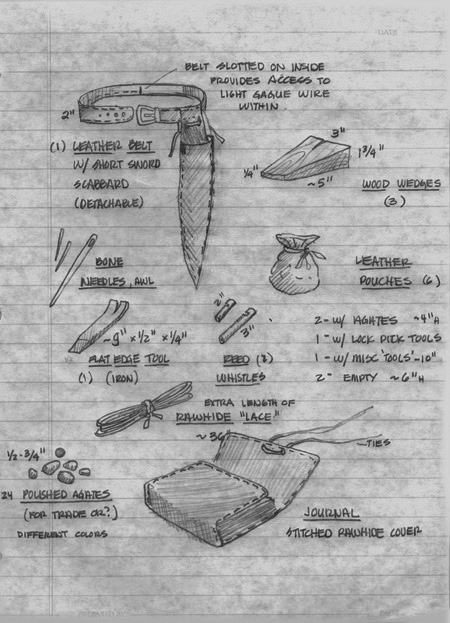 DATE
BELT SLOTTED ON INSIDE
PROVIDES ACCESS TO
LIGHT GAGUE WIRE
WITHIN.
2"
(1) LEATHER BELT
W/ SHORT SWORD
SCABBARD
(DETACHABLE)
3"
1 3/4"
1/4"
~5"
WOOD WEDGES
(3)
BONE
NEEDLES, AWL
LEATHER
POUCHES (6)
2"
3"
~9" x 1/2" x 1/4"
FLAT EDGE TOOL
(1) (IRON)
REED (2)
WHISTLES
2 - W/ AGATES ~4"H
1 - W/ LOCK PICK TOOLS
1 - W/ MISC 'TOOLS' ~10"
2 - EMPTY ~6"H
EXTRA LENGTH OF
RAWHIDE "LACE"
~36"
TIES
1/2 - 3/4"
24 POLISHED AGATES
(FOR TRADE OR?)
DIFFERENT COLORS
JOURNAL
STITCHED RAWHIDE COVER